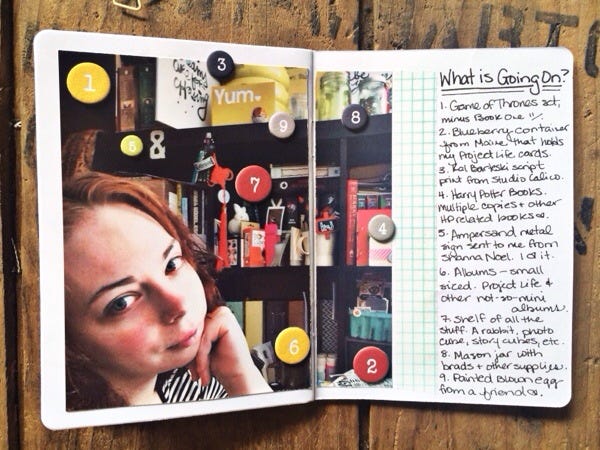 1
3
Yum.
9
8
5
&
7
4
6
2
What is Going On?
1. Game of Thrones set,
minus Book One
2. Blueberry container
from Maine that holds
my Project Life cards.
3. Kal Barteski script
print from Studio Calico.
4. Harry Potter Books.
multiple copies + other
HP related books.
5. Ampersand metal
sign sent to me from
Shanna Noel. I ♡ it.
6. Albums - small
sized. Project Life &
other not-so-mini
albums.
7. Shelf of all the
stuff. A rabbit, photo
cube, story cubes, etc.
8. Mason jar with
brads + other supplies.
9. Painted Blown egg
from a friend